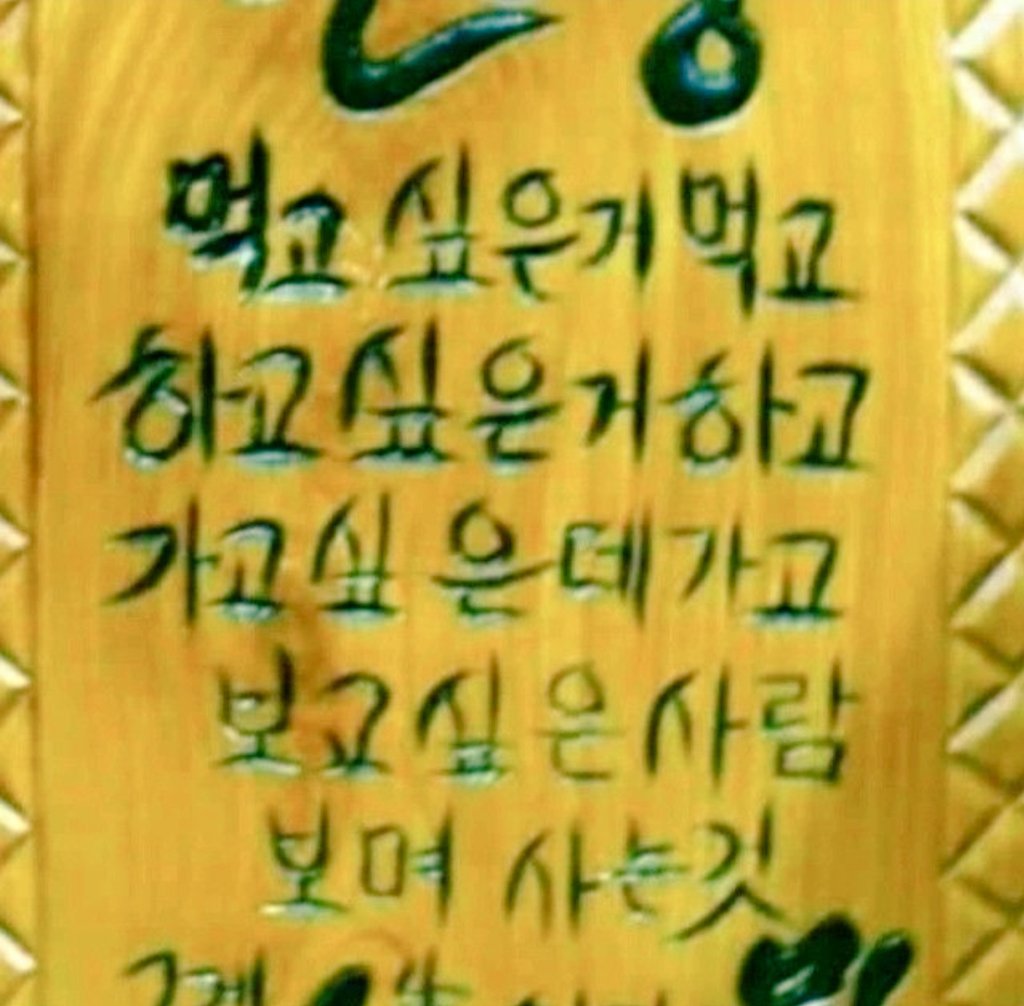 먹고 싶은거 먹고
하고 싶은거 하고
가고 싶은데 가고
보고 싶은 사람
보며 사는것